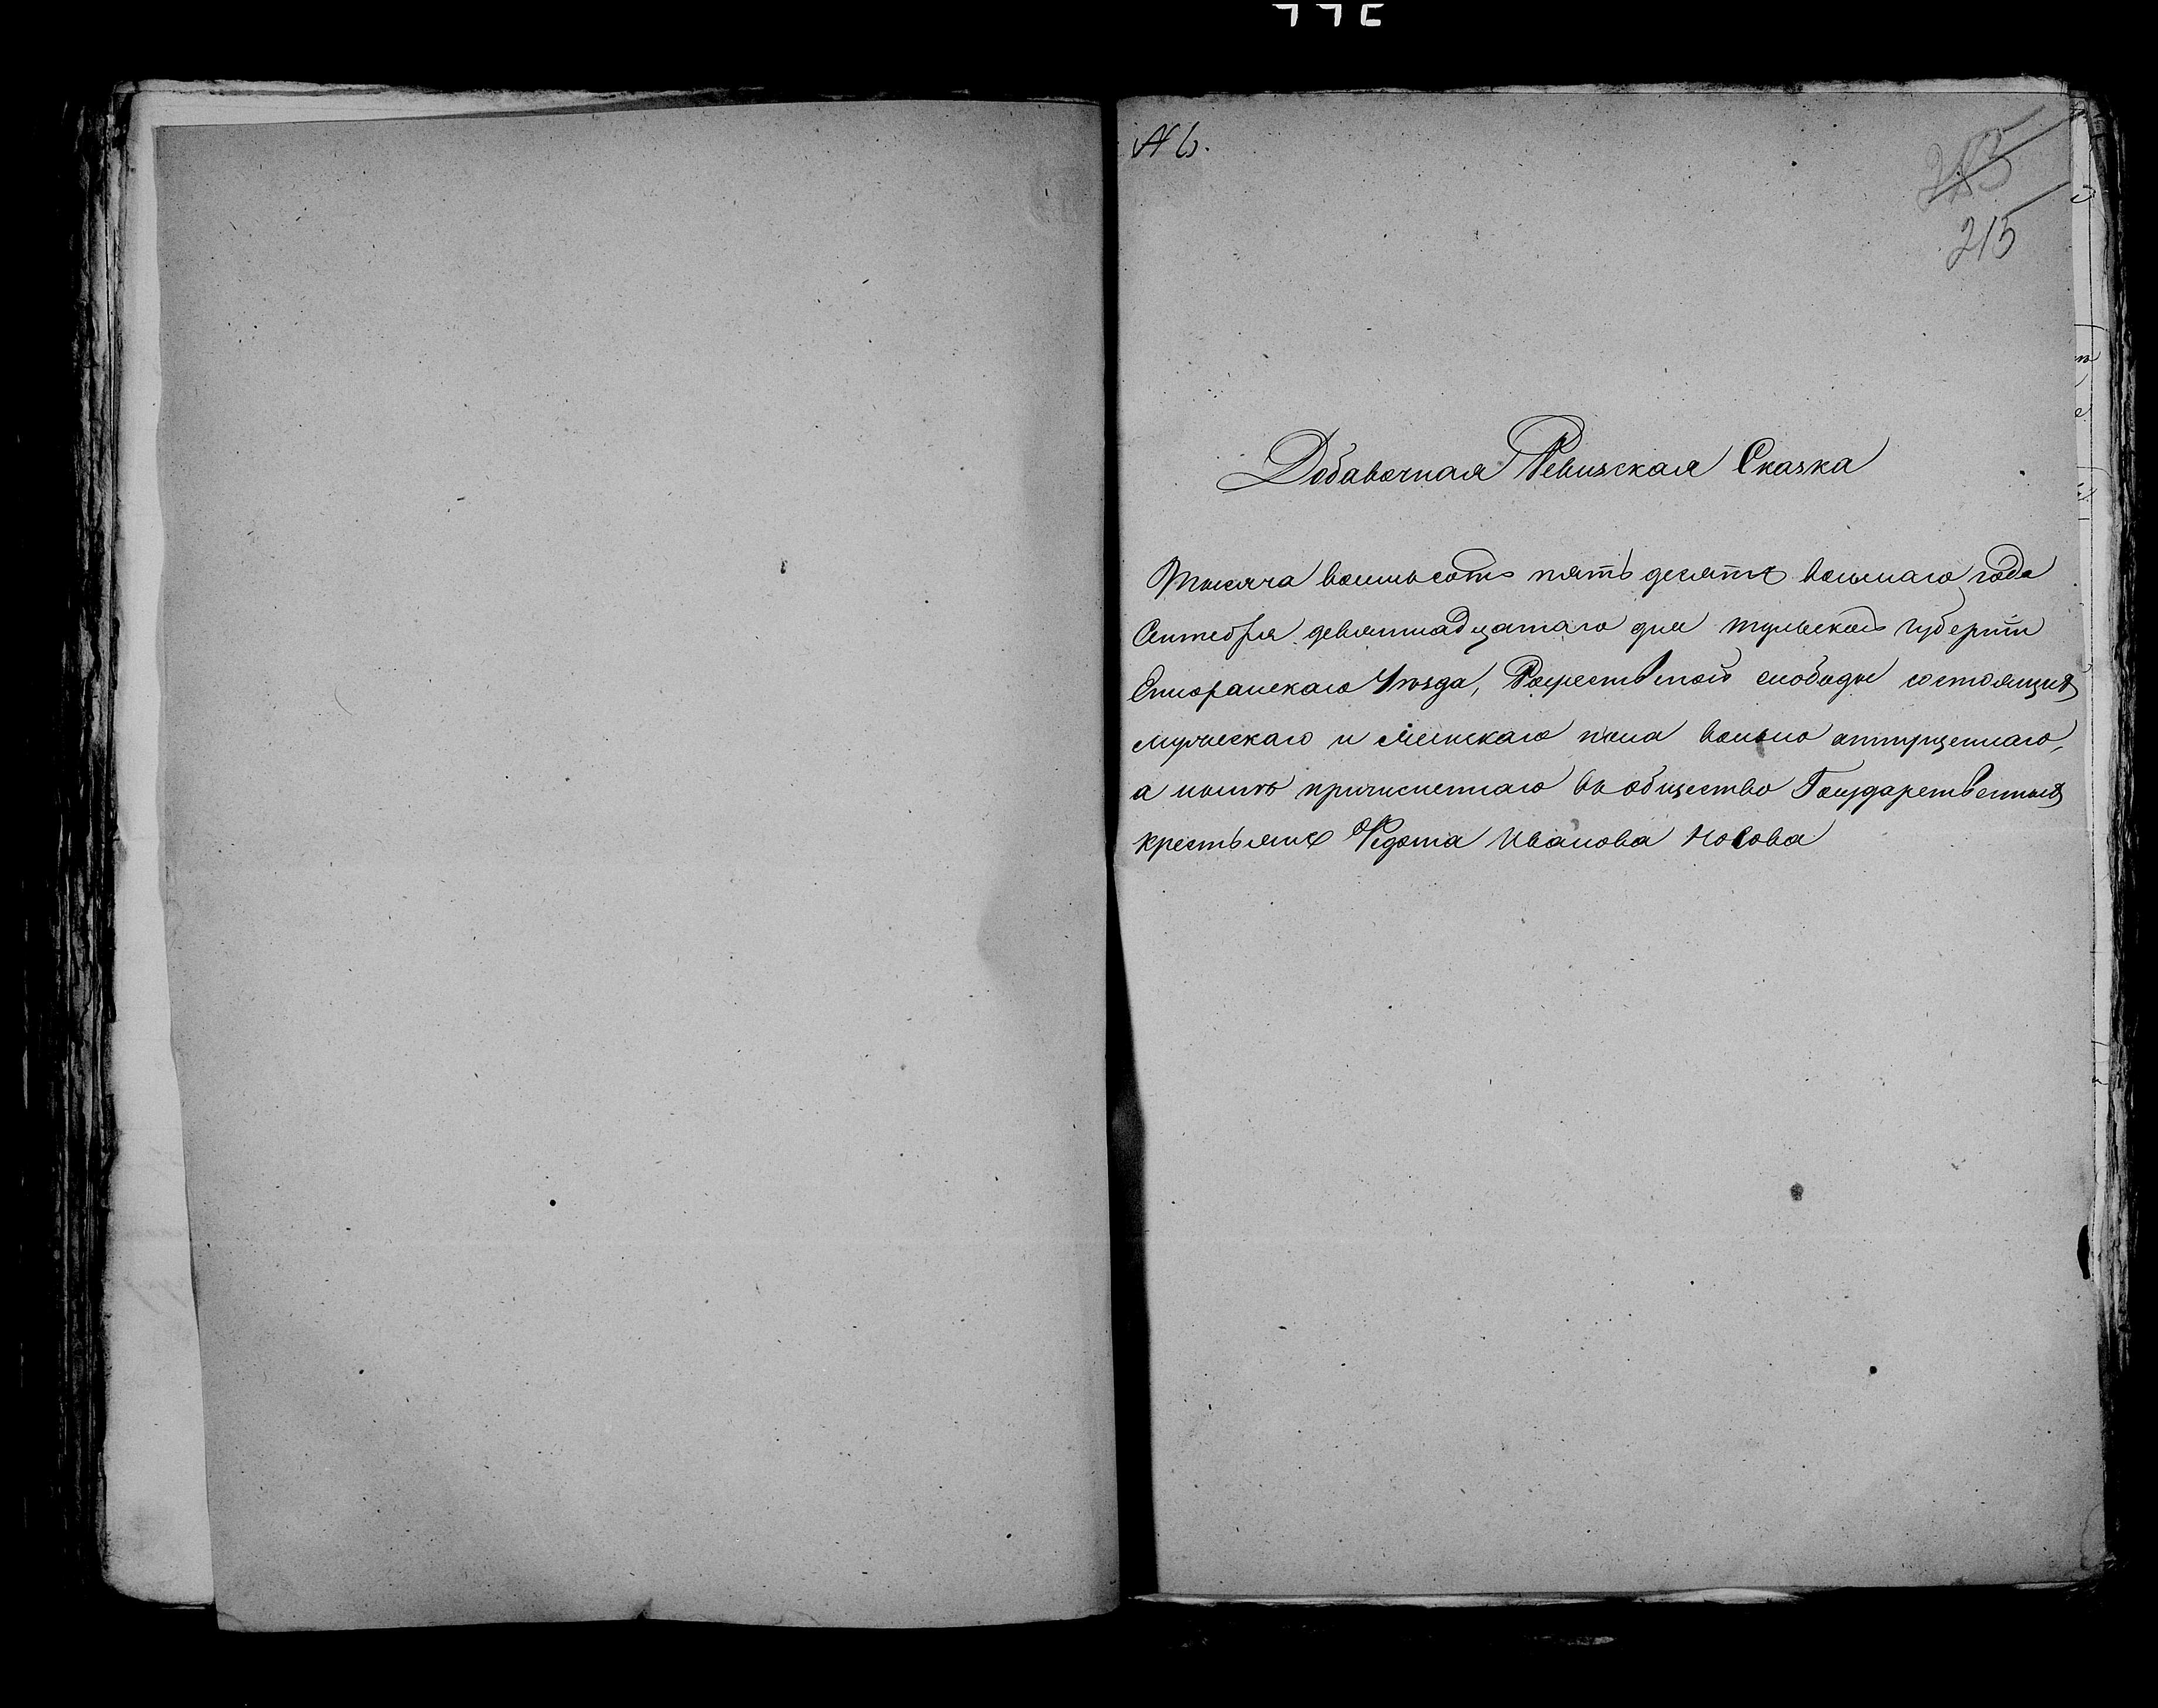 № 6.
213
215
Добавочная Ревизская Сказка
Тысяча восемьсотъ пять десятъ восьмаго года
Сентебря девятнадцатаго дня тульской губерніи
Епифанскаго Уѣзда, Рожественой слободы состоящихъ
мужескаго и женскаго пола вольно отпущеннаго,
а нынѣ причисленнаго въ общество Государственныхъ
крестьянъ Федота Иванова Носова